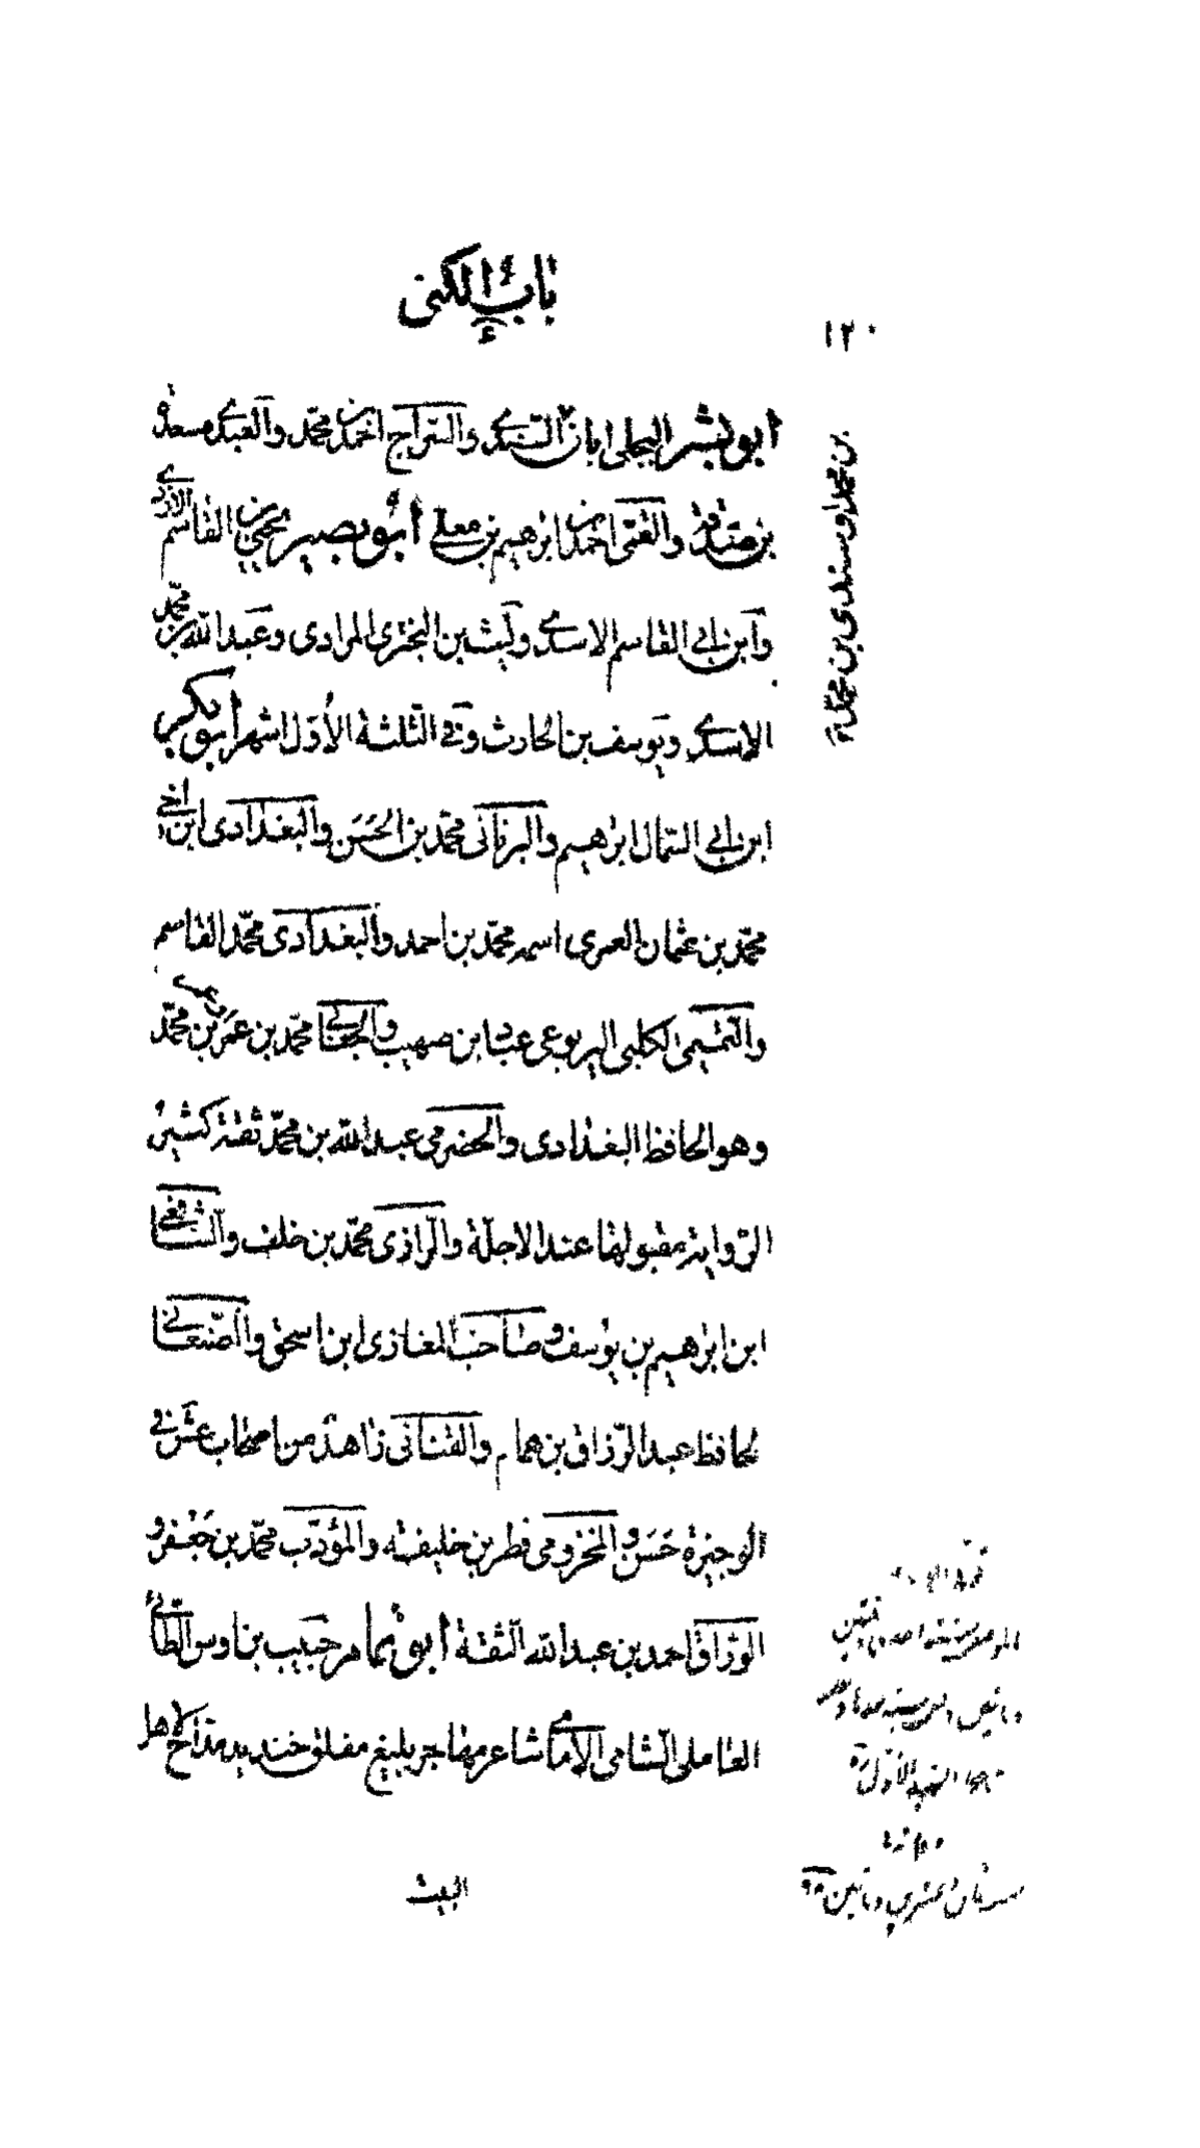 باب الكنى
١٢٠
أبو بشر البجلى ابان السندي والسراج احمد بن محمد والعبدي مسعدة
بن صدقة والقمّى احمد بن ابرهيم بن معلى أبو بصير يحيى بن القاسم الازدي
وابن ابي القاسم الاسدي وليث بن البخترى المرادى وعبد الله بن محمد
الاسدي ويوسف بن الحارث وفي الثلثة الأول اشهر أبو بكر
ابن ابي السمال ابرهيم والبرنانى محمد بن الحسن والبغدادى ابن اخي
محمد بن عثمان العمرى اسمه محمد بن احمد والبغدادى محمد القاسم
والتميمى الكلبى اليربوعى عباد بن صهيب والجعابي محمد بن عمر بن محمد
وهو الحافظ البغدادى والحضرمى عبد الله بن محمد ثقة كثير
الرواية مقبولها عند الاجلّة والرازى محمد بن خلف والشافعي
ابن ابرهيم بن يوسف وصاحب المغازى ابن اسحق والصنعاني
لحافظ عبد الرزاق بن همام والقنانى زاهد من اصحاب عش في
الوجيزة حسن والمخزومى فطر بن خليفة والمؤدب محمد بن جعفر و
الوراق احمد بن عبد الله الثقة أبو تمام حبيب بن اوس الطائي
العاملى الشامى الامامي شاعر مهاجر بليغ مفلق خنديد مداح لاهل
البيت
بن محمد او سندى بن محمد